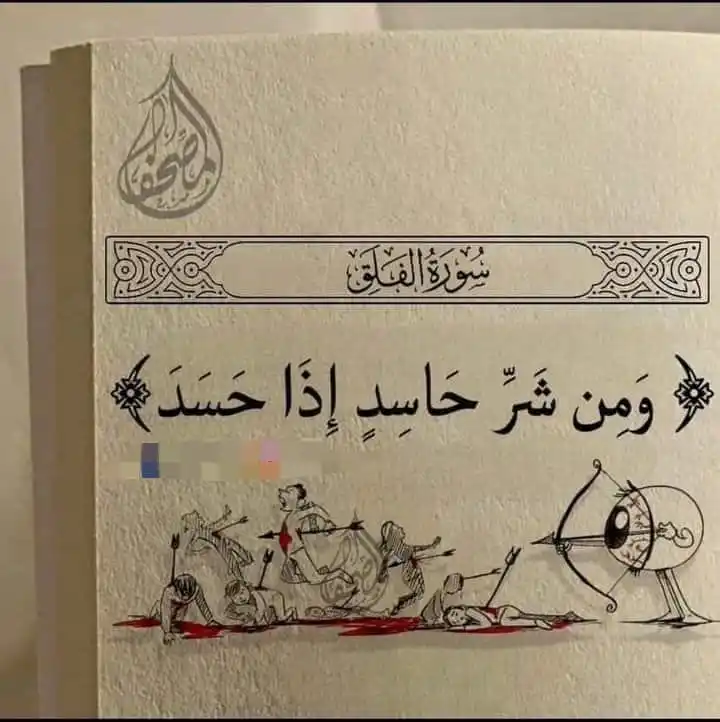 المصحف
سُورَةُ الفَلَقِ
﴿ وَمِن شَرِّ حَاسِدٍ إِذَا حَسَدَ ﴾
المصحف